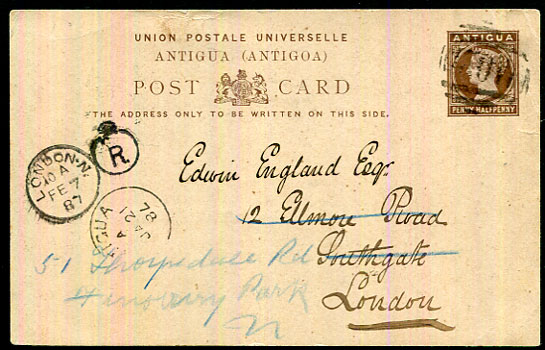 UNION POSTALE UNIVERSELLE
ANTIGUA (ANTIGOA)
POST CARD
THE ADDRESS ONLY TO BE WRITTEN ON THIS SIDE.
ANTIGUA
PENNY HALFPENNY
R
LONDON·N.
10 A
FE 7
87
IGUA
A
JA 21
87
Edwin England Esqr.
12 Ellmore Road
Southgate
London
51 Thorpedale Rd
Park
N